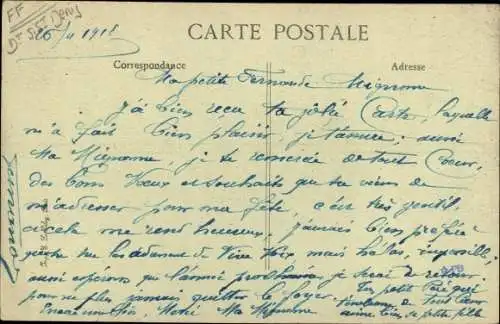 FF
Dt St Denis
CARTE POSTALE
26/11 1918
Correspondance
Adresse
Ma petite Fernande Mignonne
J'ai bien reçu ta jolie Carte, laquelle
m'a fait bien plaisir, je t'assure; aussi
Ma Mignonne, je te remercie de tout Cœur,
des bons Vœux et souhaits que tu viens de
m'adresser pour ma fête, c'est très gentil
cela me rend heureux. j'aurais bien préféré
que tu les de Vive Voix mais hélas, impossible;
aussi espérons que l'année prochaine je serai de retour
pour ne plus jamais quitter le foyer. Ton petit Père qui
de tout Cœur
Encore une fois, Merci Ma Mignonne aime bien sa petite fille